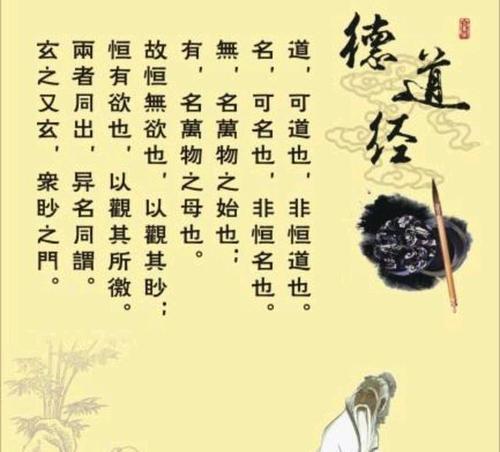 德道经
道，可道也，非恒道也。
名，可名也，非恒名也。
無，名萬物之始也；
有，名萬物之母也。
故恒無欲也，以觀其眇；
恒有欲也，以觀其所徼。
兩者同出，异名同謂。
玄之又玄，衆眇之門。